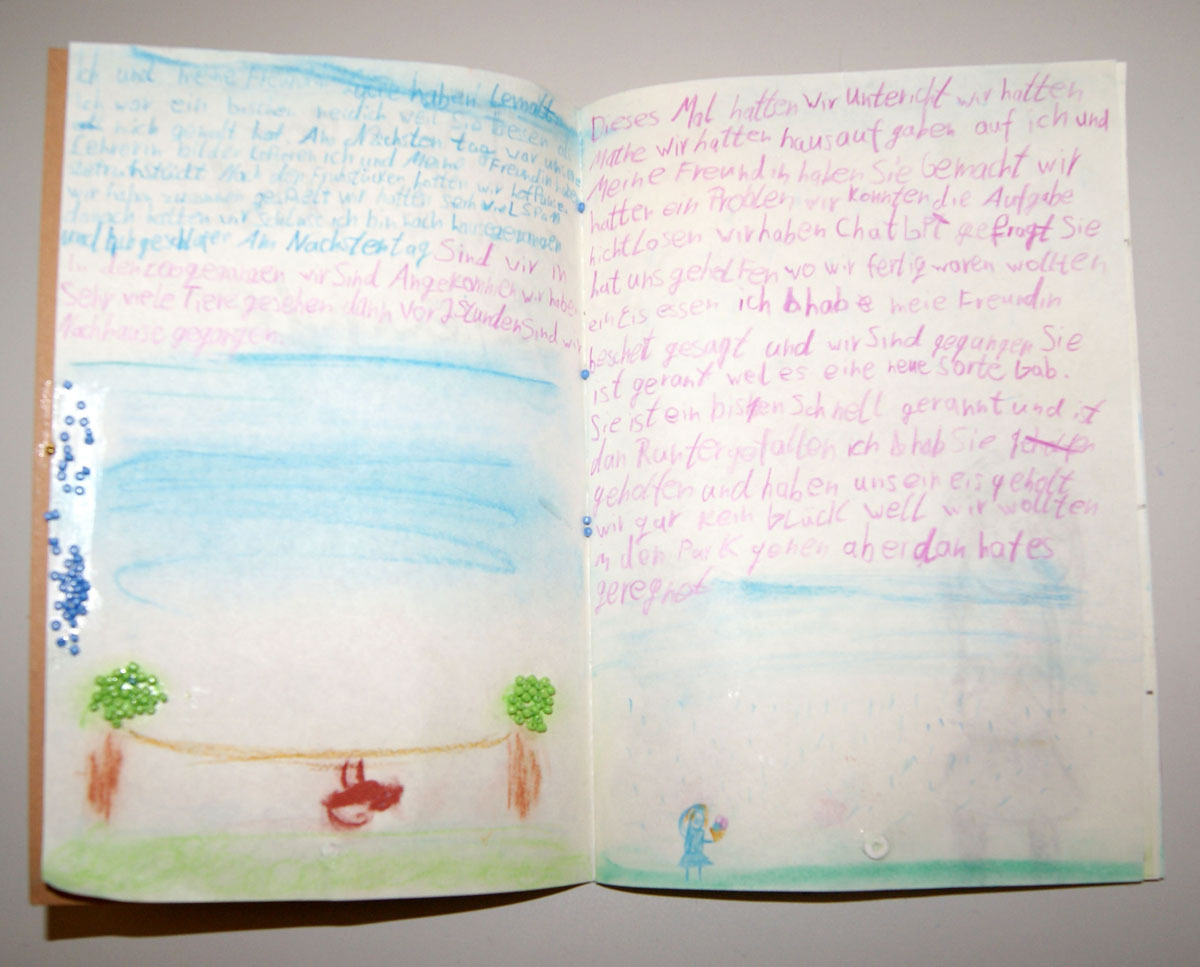 Ich und meine haben
Ich war ein bischen neidich weil Sie besen als
ich gemalt hat. Am Nächsten tag war unsere
Lehrerin bilder kopieren ich und Meine Freundin haben
Nach den Früstücken hatten wir hofpause
wir haben zusammen gespielt wir hatten sehr viel SPaß
danach hatten wir Schluss ich bin nach hause gegangen
und hab geschlafen Am Nächstentag Sind wir in
In den zoo gegangen wir Sind Angekommen wir haben
Sehr viele Tiere gesehen dann vor 2 Stunden Sind wir
Nachhause gegangen.
Dieses Mal hatten wir Untericht wir hatten
Mathe wir hatten hausaufgaben auf ich und
Meine Freundin haben Sie Gemacht wir
hatten ein Problem wir konnten die Aufgabe
nicht Lösen wir haben Chatbit gefragt Sie
hat uns geholfen wo wir fertig waren wollten
ein Eis essen ich hab meie Freundin
bescheit gesagt und wir Sind gegangen Sie
ist gerant weil es eine neue Sorte Gab.
Sie ist ein bisen Schnell gerannt und ist
dan Runtergefallen ich hab Sie
geholfen und haben uns ein eis geholt
wir gar kein Glück weil wir wollten
in den Park gehen aber dan hat es
geregnet